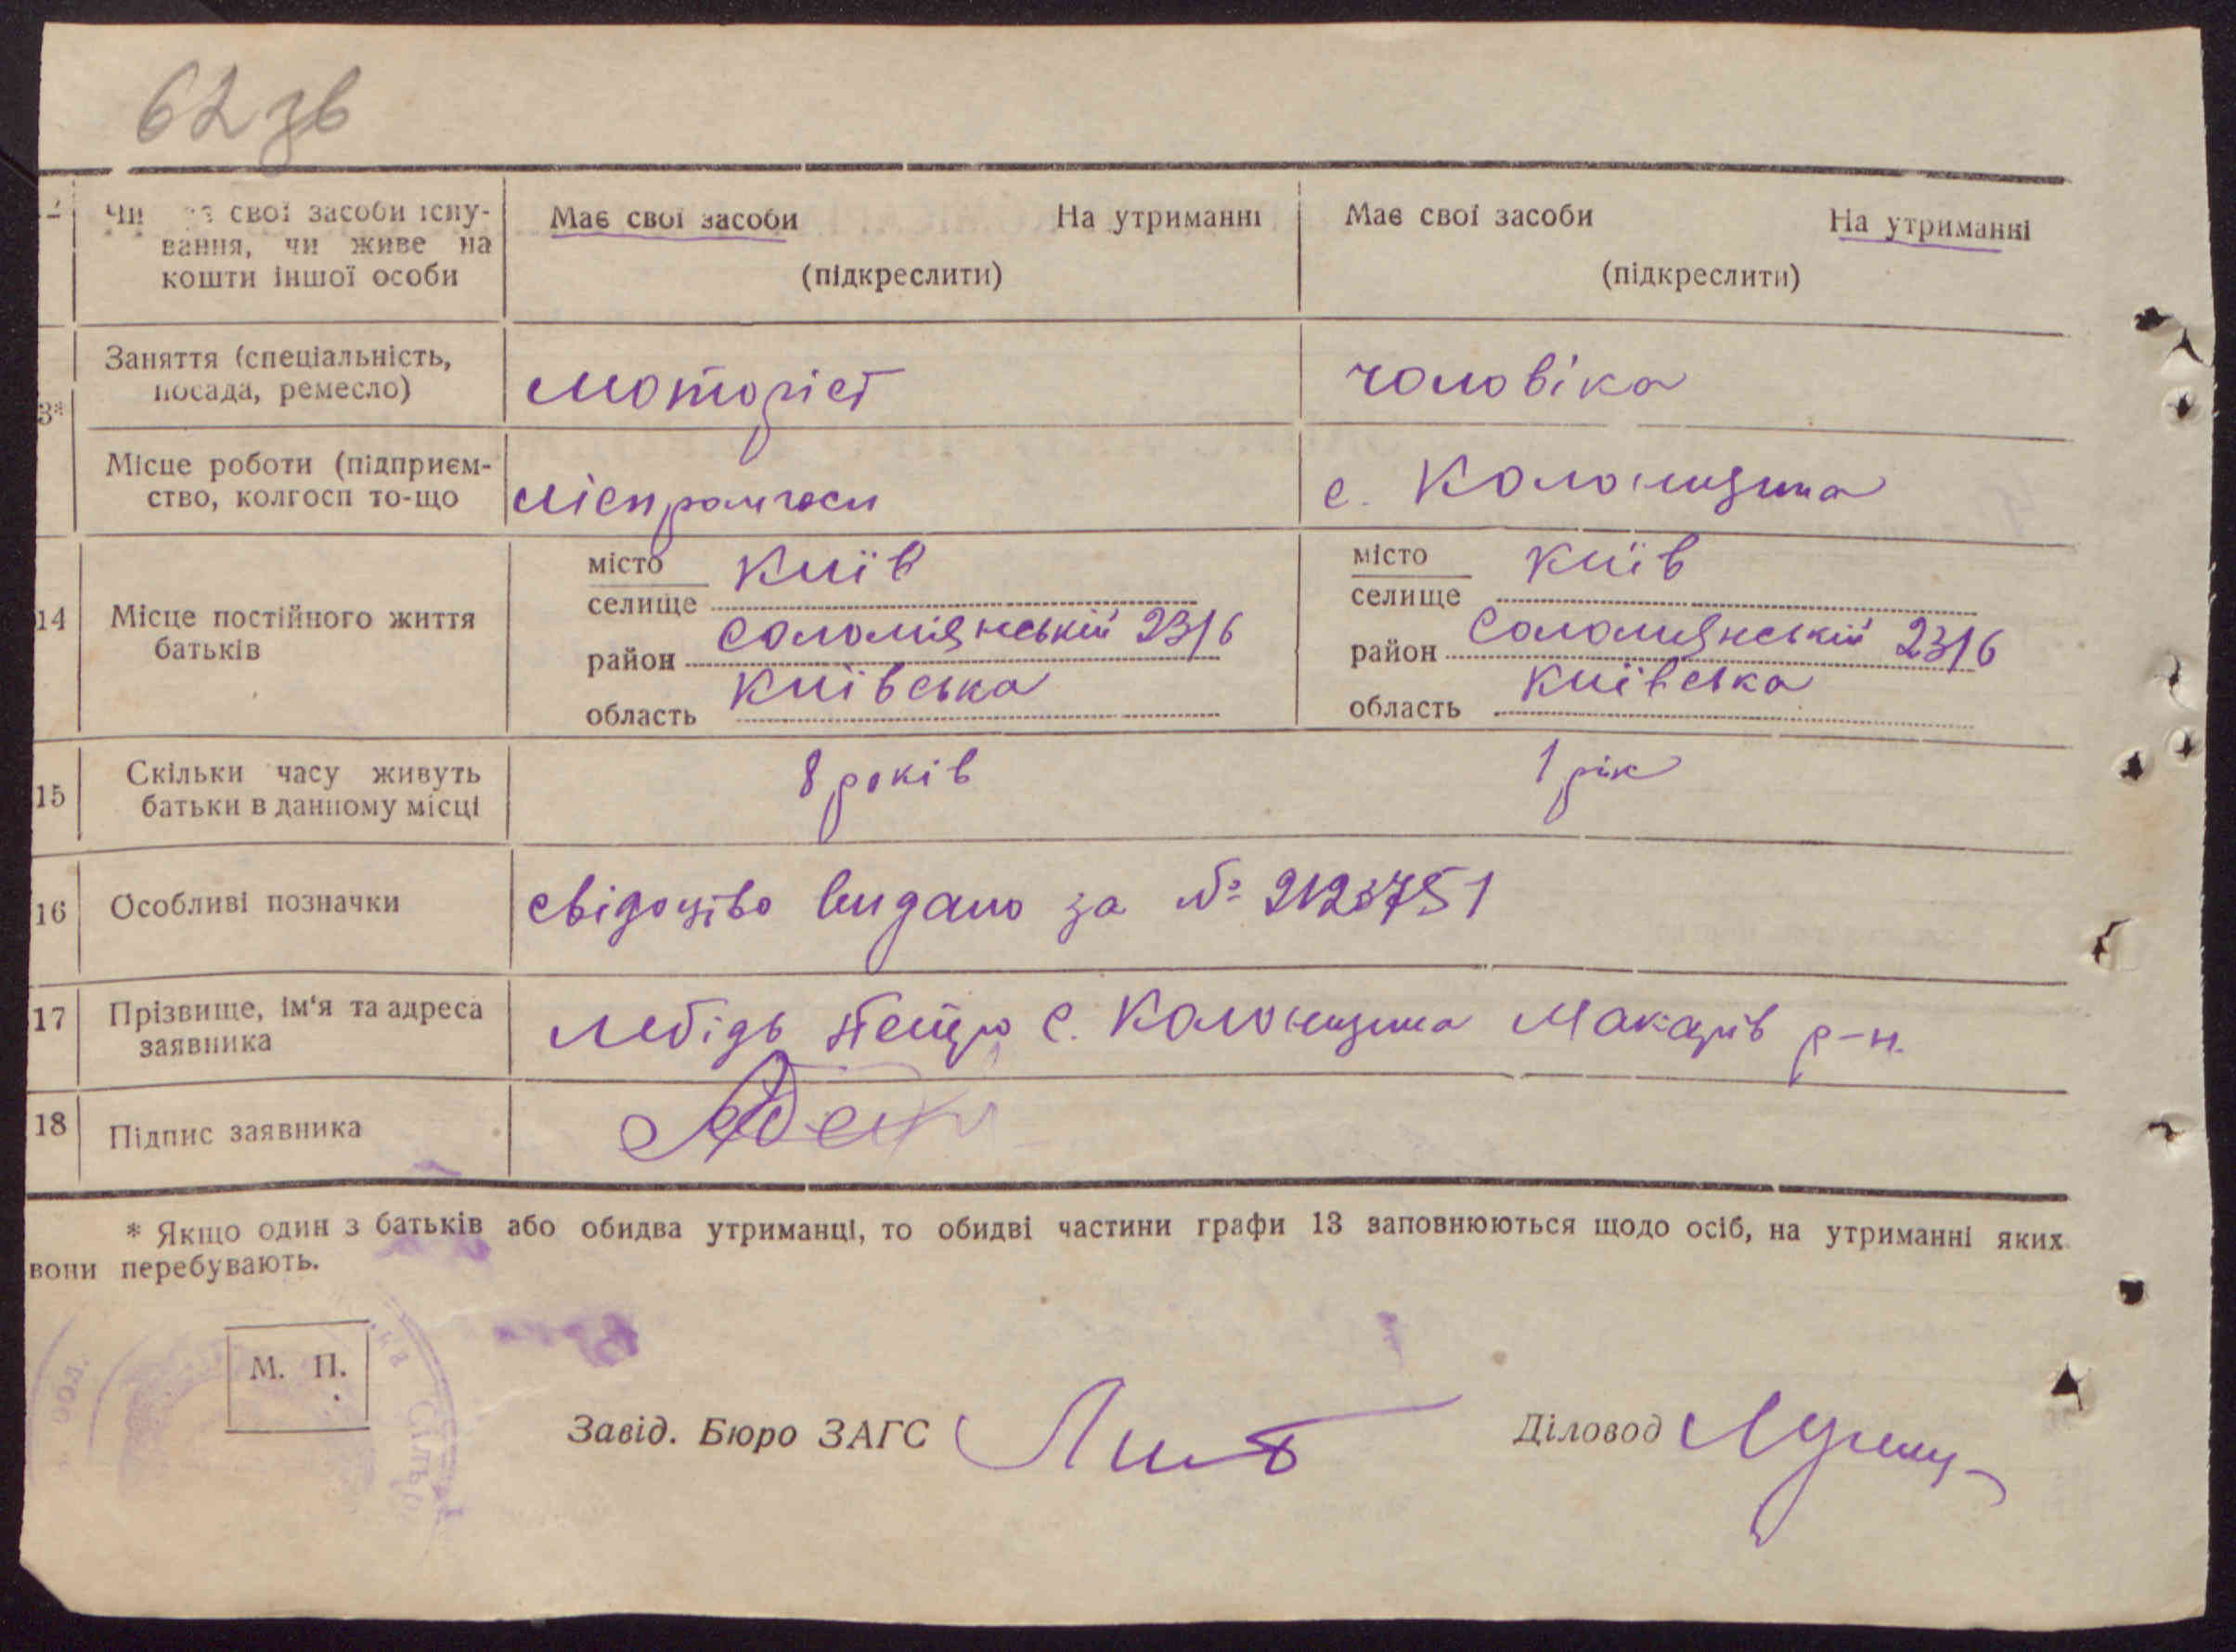 62 зв
Чи свої засоби існу-
вання, чи живе на
кошти іншої особи
Має свої засоби На утриманні
(підкреслити)
Має свої засоби На утриманні
(підкреслити)
3*
Заняття (спеціальність,
посада, ремесло)
моторіст
чоловіка
Місце роботи (підприєм-
ство, колгосп то-що
с. Колонщина
14
Місце постійного життя
батьків
місто Київ
селище
район Соломянській 23/6
область Київська
місто Київ
селище
район Соломянській 23/6
область Київська
15
Скільки часу живуть
батьки в данному місці
8 років
1 рік
16
Особливі позначки
свідоцтво видано за № 2123751
17
Прізвище, ім‘я та адреса
заявника
Лебідь Петро с. Колонщина Макарів р-н.
18
Підпис заявника
* Якщо один з батьків або обидва утриманці, то обидві частини графи 13 заповнюються щодо осіб, на утриманні яких
вони перебувають.
М. П.
Завід. Бюро ЗАГС
Діловод